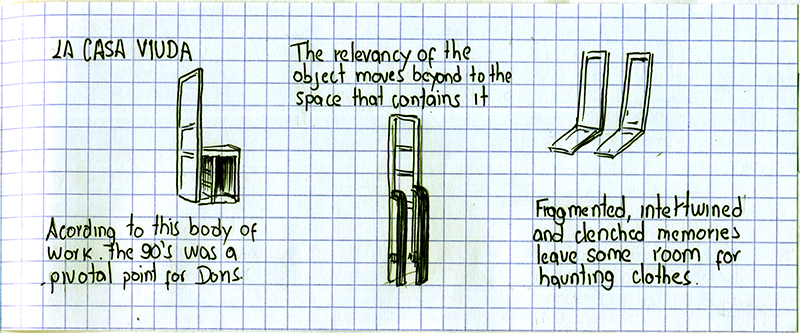 LA CASA VIUDA
Acording to this body of
work. The 90's was a
pivotal point for Doris.
The relevancy of the
object moves beyond to the
space that contains it
Fragmented, intertwined
and clenched memories
leave some room for
haunting clothes.